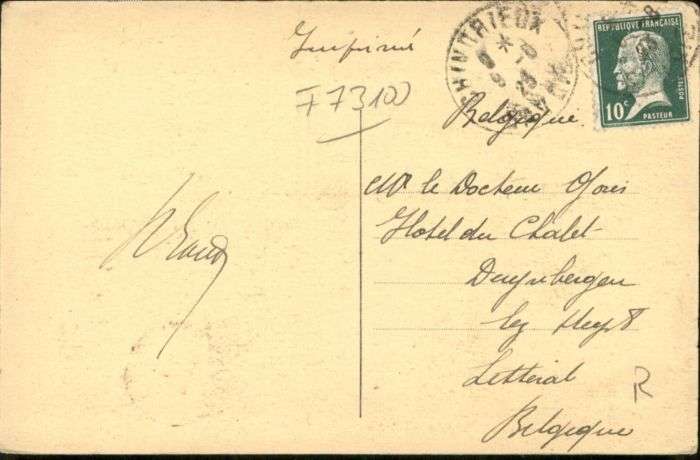 Imprimé
F73100
CHINDRIEUX
RÉPUBLIQUE FRANÇAISE
10c
POSTES
PASTEUR
Belgique
Mr le Docteur
Hotel du Chalet
Duynbergen
lez Heyst
Littéral
Belgique
R